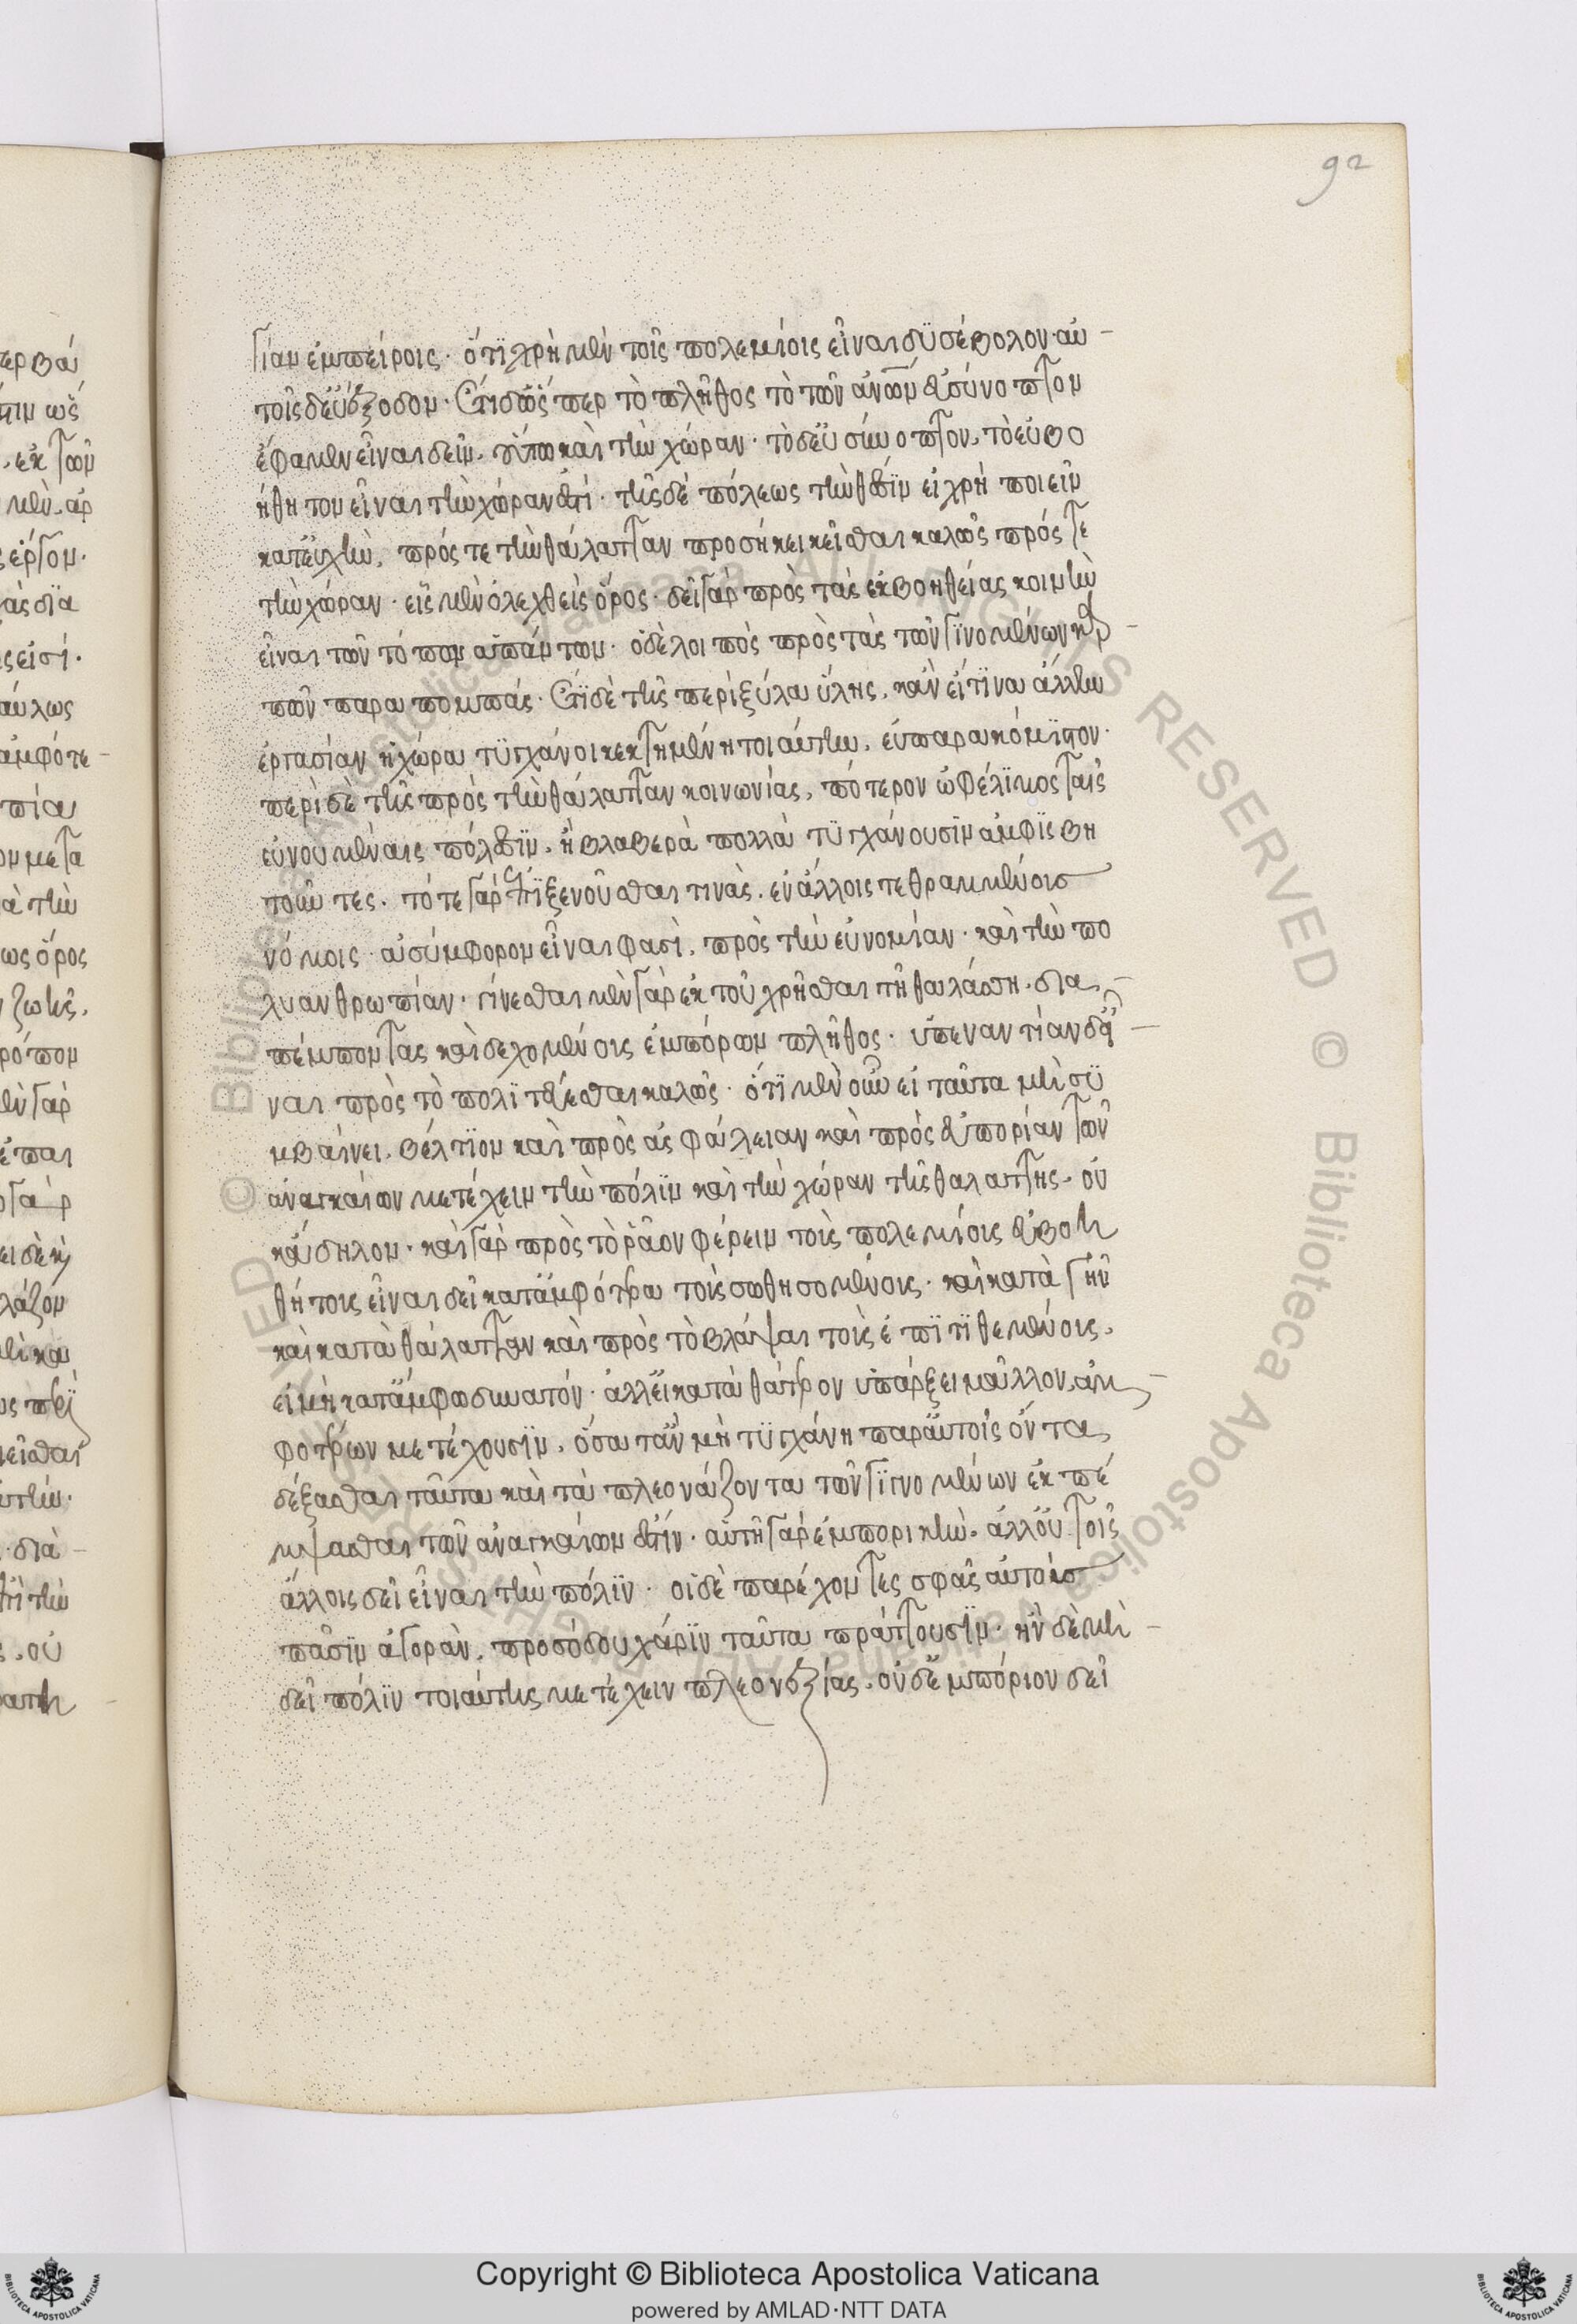 92
γίαν ἐμπείροις· ὅτι χρὴ μὲν τοῖς πολεμίοις εἶναι δυσέμβολον· αὐ
τοῖς δ' εὐέξοδον· ἔτι δ' ὥσπερ τὸ πλῆθος τὸ τῶν ἀν͞ων εὐσύνοπτον
ἔφαμεν εἶναι δεῖν, οὕτω καὶ τὴν χώραν· τὸ δ' εὐσύνοπτον, τὸ εὐβο
ήθητον εἶναι τὴν χώραν ἐστί· τῆς δὲ πόλεως τὴν θέσιν εἰ χρὴ ποιεῖν
κατ' εὐχὴν, πρός τε τὴν θάλατταν προσήκει κεῖσθαι καλῶς πρός τε
τὴν χώραν· εἷς μὲν ὁ λεχθεὶς ὅρος· δεῖ γὰρ πρὸς τὰς ἐκβοηθείας κοινὴν
εἶναι τῶν τόπων ἁπάντων· ὁ δὲ λοιπὸς πρὸς τὰς τῶν γινομένων καρ
πῶν παραπομπάς· ἔτι δὲ τῆς περὶ ξύλα ὕλης, κἂν εἴ τινα ἄλλην
ἐργασίαν ἡ χώρα τυγχάνοι κεκτημένη τοιαύτην, εὐπαρακόμιστον·
περὶ δὲ τῆς πρὸς τὴν θάλατταν κοινωνίας, πότερον ὠφέλιμος ταῖς
εὐνουμέναις πόλεσιν, ἢ βλαβερὰ πολλὰ τυγχάνουσιν ἀμφισβη
τοῦντες. τό τε γὰρ ἐπιξενοῦσθαι τινὰς, ἐν ἄλλοις τεθραμμένοις
νόμοις ἀσύμφορον εἶναι φασὶ, πρὸς τὴν εὐνομίαν· καὶ τὴν πο
λυανθρωπίαν· γίνεσθαι μὲν γὰρ ἐκ τοῦ χρῆσθαι τῇ θαλάσση, δια
πέμποντας καὶ δεχομένοις ἐμπόρων πλῆθος· ὑπεναντίαν δ' εἶ
ναι πρὸς τὸ πολιτεύεσθαι καλῶς· ὅτι μὲν οὖν εἰ ταῦτα μὴ συ
μβαίνει, βέλτιον καὶ πρὸς ἀσφάλειαν καὶ πρὸς εὐπορίαν τῶν
ἀναγκαίων μετέχειν τὴν πόλιν καὶ τὴν χώραν τῆς θαλάττης, οὐ
κ ἄδηλον· καὶ γὰρ πρὸς τὸ ῥᾶον φέρειν τοὺς πολεμίους εὐβοη
θήτους εἶναι δεῖ κατ' ἀμφότερα τοὺς σωθησομένους· καὶ κατὰ γῆν
καὶ κατὰ θάλατταν καὶ πρὸς τὸ βλάψαι τοὺς ἐπιτιθεμένους,
εἰ μὴ κατ' ἄμφω δυνατόν· ἀλλ' εἰ κατὰ θάτερον ὑπάρξει μᾶλλον, ἀμ
φοτέρων μετέχουσιν, ὅσα τ' ἂν μὴ τυγχάνη παρ' αὐτοῖς ὄντα,
δέξασθαι ταῦτα καὶ τὰ πλεονάζοντα τῶν γιγνομένων ἐκπέ
μψασθαι τῶν ἀναγκαίων ἐστίν· αὐτῇ γὰρ ἐμπορικὴν, ἀλλ' οὐ τοῖς
ἄλλοις δεῖ εἶναι τὴν πόλιν· οἱ δὲ παρέχοντες σφᾶς αὐτοὺς
πᾶσιν ἀγορὰν, προσόδου χάριν ταῦτα πράττουσιν· ἣν δὲ μὴ
δεῖ πόλιν τοιαύτης μετέχειν πλεονεξίας, οὐδ' ἐμπόριον δεῖ